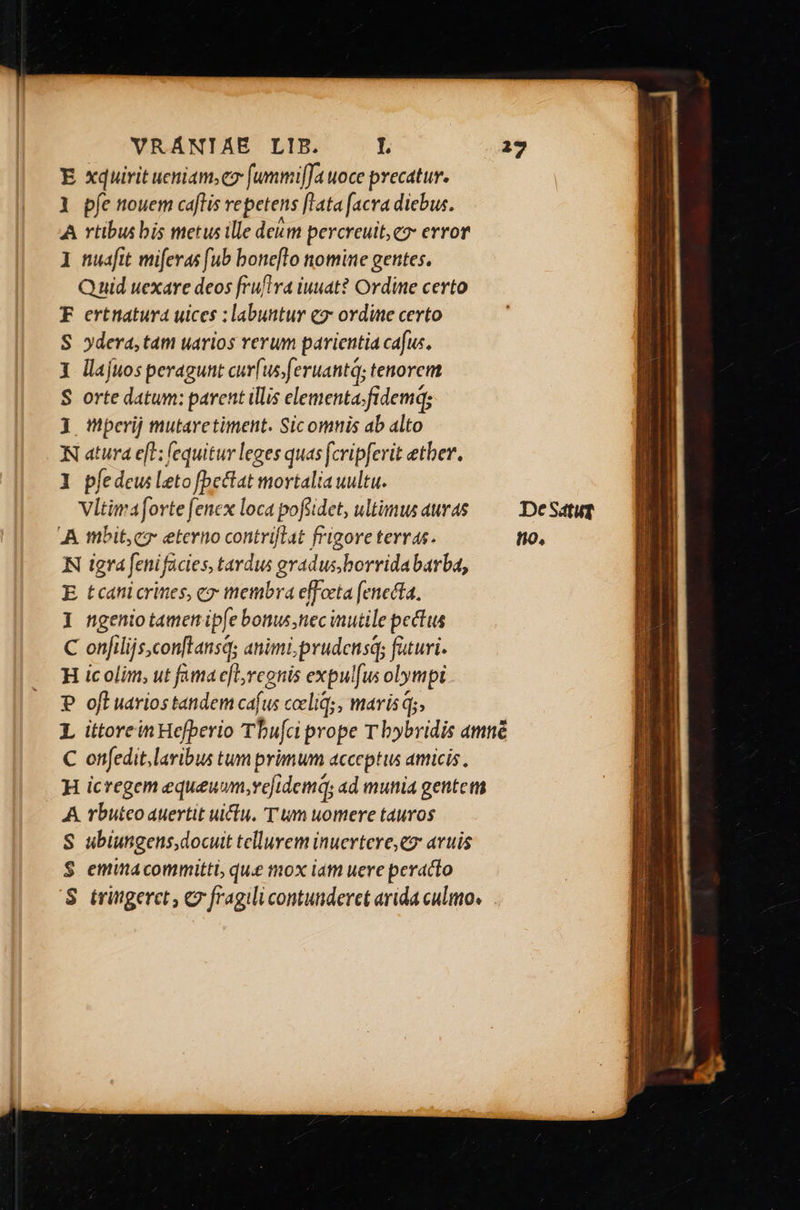 VRANIAE LIB. I. 27
E xquirit ueniam, & ſummiſſa uoce precatur.
I pſe nouem caſtis repetens ſtata ſacra diebus.
A rtibus his metus ille deûm percreuit, & error
I nuaſit miſeras ſub honeſto nomine gentes.
Quid uexare deos fruſtra iuuat? Ordine certo
F ert natura uices: labuntur & ordine certo
S ydera, tam uarios rerum parientia caſus.
I lla ſuos peragunt curſus, ſeruantq; tenorem
S orte datum: parent illis elementa, fidemq;
I mperij mutare timent. Sic omnis ab alto
N atura eſt: ſequitur leges quas ſcripſerit æther.
I pſe deus læto ſpectat mortalia uultu.
Vltima forte ſenex loca poſsidet, ultimus auras
De Satur
A mbit, & æterno contriſtat frigore terras.
no.
N igra ſeni facies, tardus gradus, horrida barba,
E t cani crines, & membra effœta ſenecta.
I ngenio tamen ipſe bonus, nec inutile pectus
C onſilijs, conſtansq; animi, prudensq; futuri.
H ic olim, ut fama eſt, regnis expulſus olympi
P oſt uarios tandem caſus cœliq;, marisq;,
L ittore in Heſperio Thuſci prope Thybridis amnē
C onſedit, laribus tum primum acceptus amicis.
H ic regem equæuum, reſidemq; ad munia gentem
A rbuteo auertit uictu. Tum uomere tauros
S ubiungens, docuit tellurem inuertere, & aruis
S emina committi, quæ mox iam uere peracto
S tringeret, & fragili contunderet arida culmo.